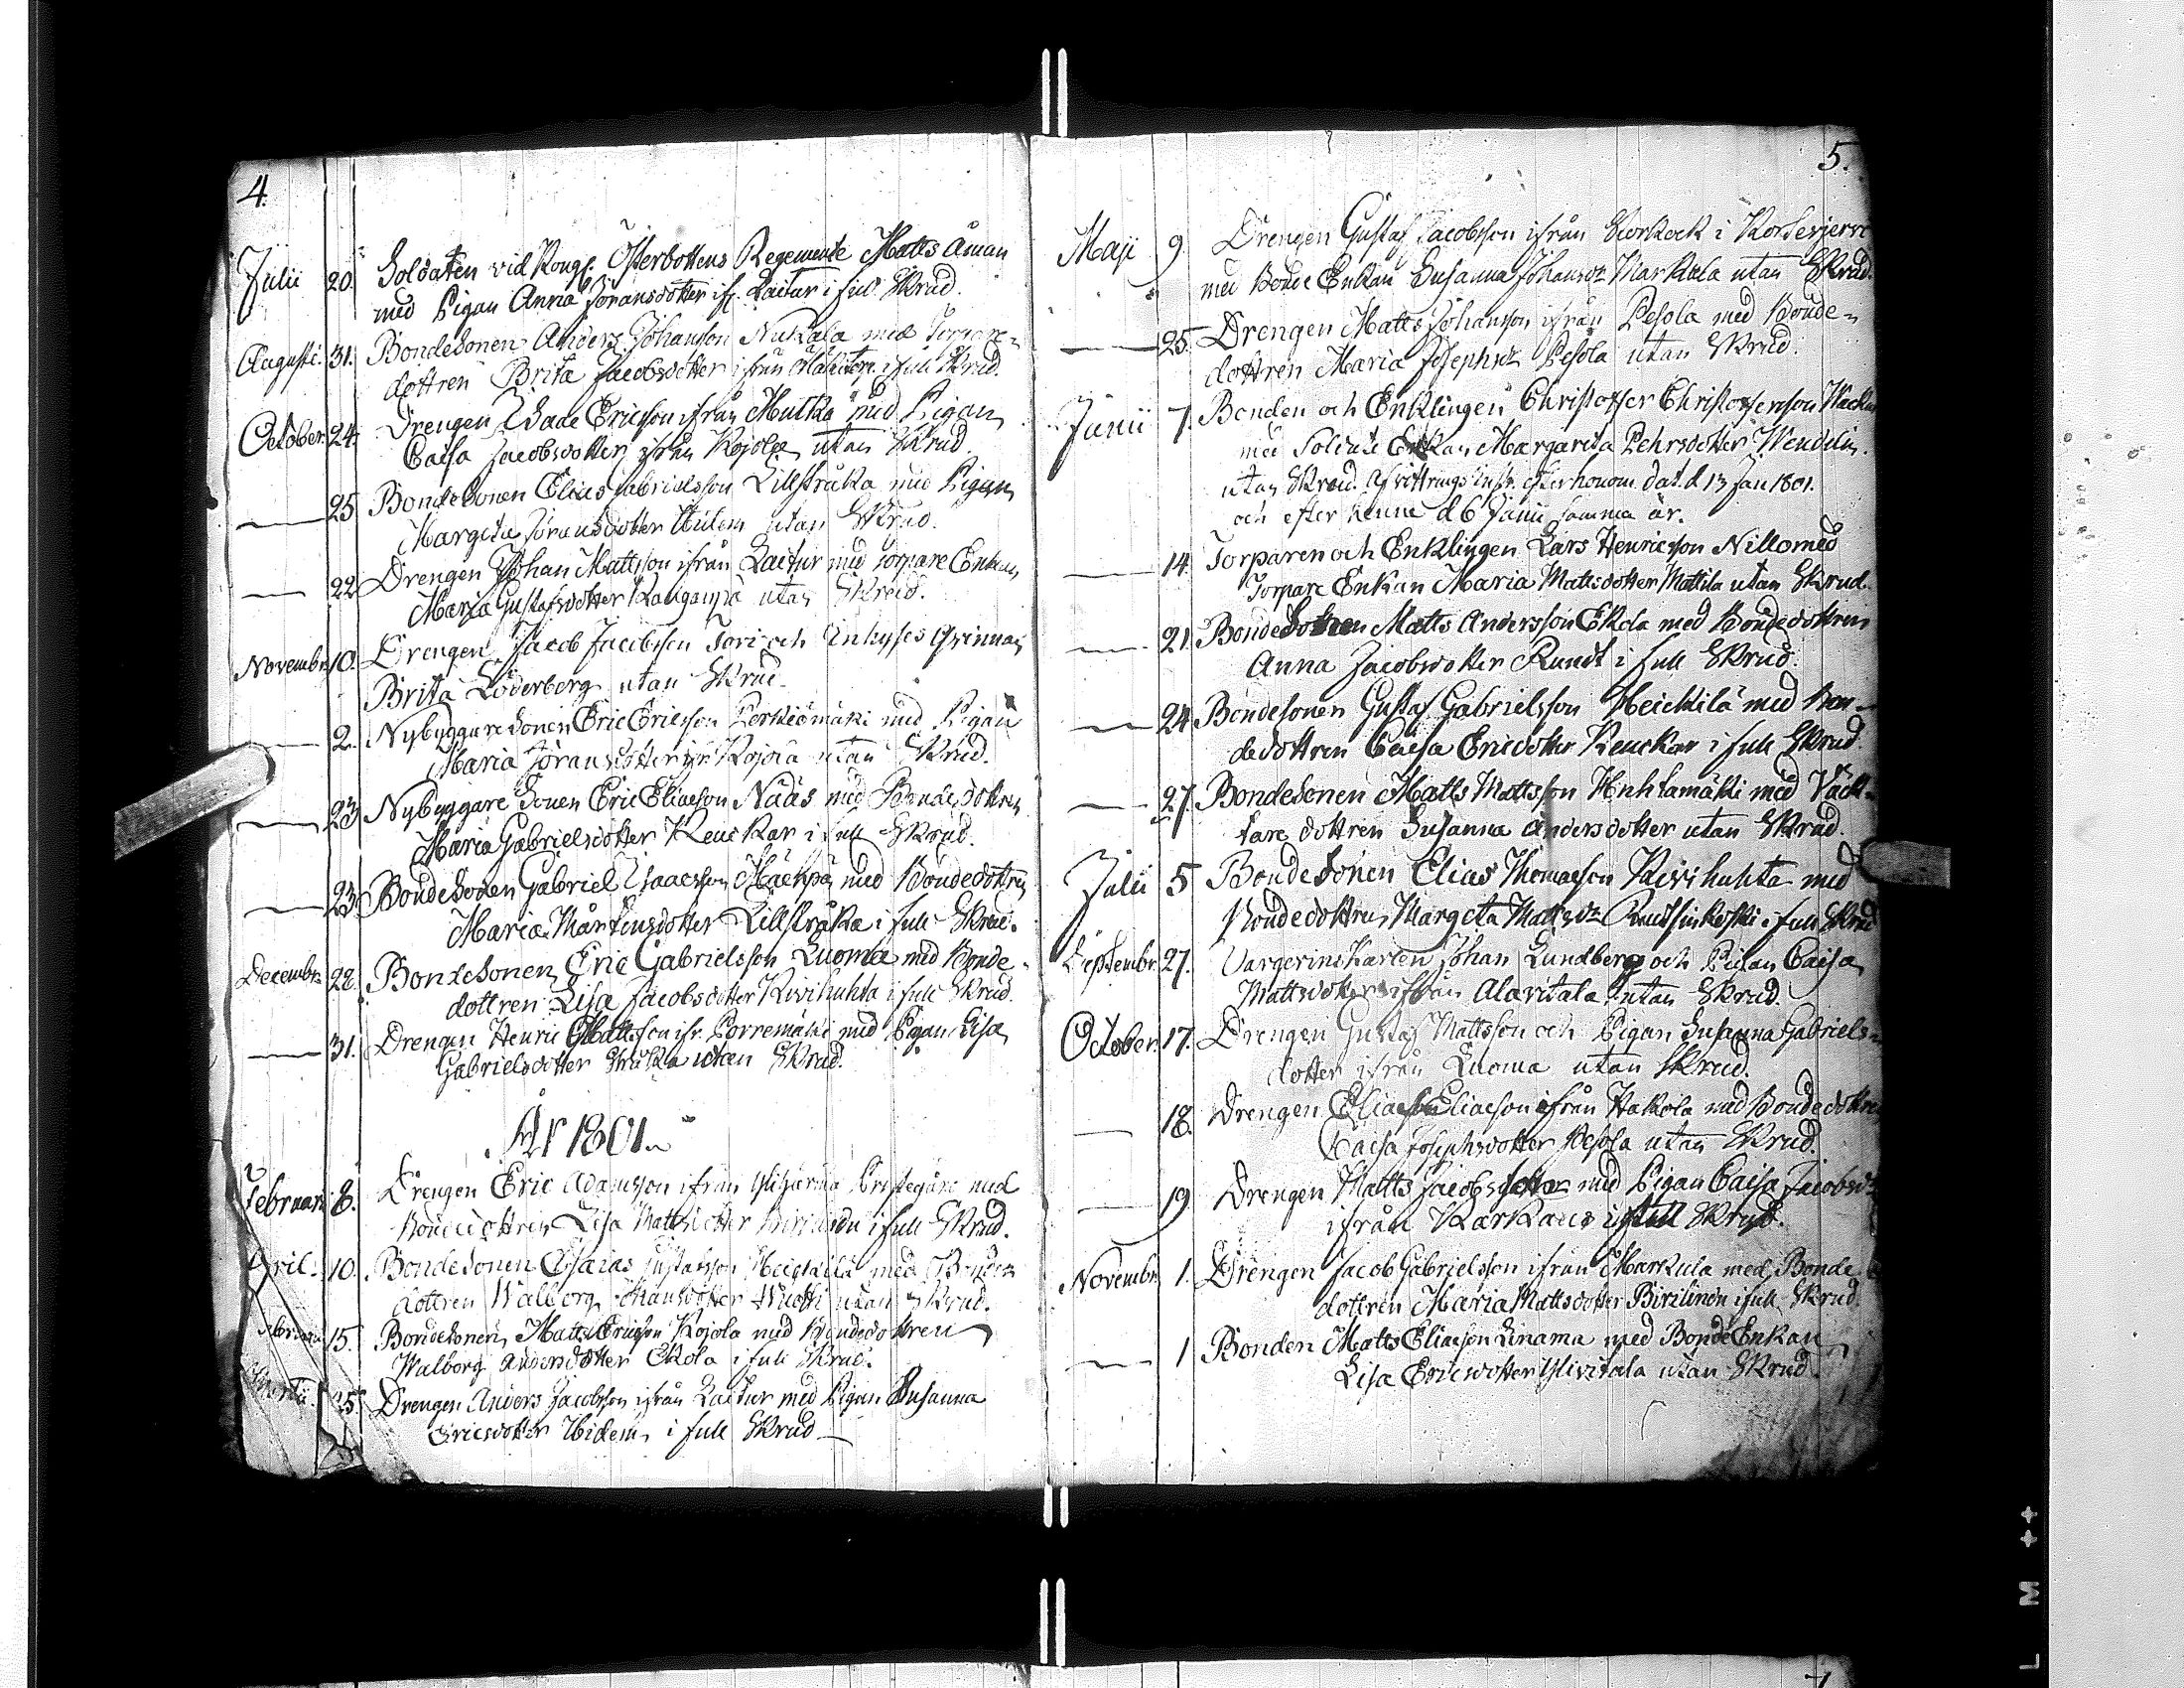 4.
Julii 20. Soldaten vid Kongl. Österbottens Regemente Matts Åman
med Pigan Anna Göransdotter ifr. Laitur i full Skrud.
Augusti. 31. Bondesonen Anders Johansson Nukala med Torpare-
dottren Brita Jacobsdotter ifrån i full Skrud.
October. 24. Drengen Isaac Ericsson ifrån Mutka med Pigan
Caisa Jacobsdotter ifrån Kojola utan Skrud.
25 Bondesonen Elias Gabrielsson Lillstråka med Pigan
Margeta Göransdotter utan Skrud.
22 Drengen Johan Mattsson ifrån Laitur med Torpare Enkan
Maria Gustafsdotter Kangaspä utan Skrud.
Novembr. 10. Drengen Jacob Jacobsson Tori och Inhyses Qvinnan
Brita Söderberg utan Skrud.
2. Nybyggare Sonen Eric Ericsson Perkiömäki med Pigan
Maria Göransdotter ifr. Kojola utan Skrud.
23 Nybyggare Sonen Eric Eliasson Nääs med Bondedottren
Maria Gabrielsdotter Keuckar i full Skrud.
23 Bondesonen Gabriel Isaacsson Mäenpä med Bondedottren
Maria Mårtensdotter Lillstråka i full Skrud.
Decembr. 22. Bondesonen Eric Gabrielsson Luoma med Bonde-
dottren Lisa Jacobsdotter Kivihuhta i full Skrud.
31. Drengen Henric Mattsson ifr. Porremäki med Pigan Lisa
Gabrielsdotter utan Skrud.
År 1801.
Februari 8. Drengen Eric Adamsson ifrån Prestegård med
Bondedottren Lisa Mattsdotter i full Skrud.
April. 10. Bondesonen Esaias Gustafsson Heickilä med Bonde
dottren Walborg utan Skrud.
15. Bondesonen Matts Ericsson Kojola med Bondedottren
Walborg Andersdotter Ekola i full Skrud.
25 Drengen Anders Jacobsson ifrån Laitur med Pigan Susanna
Ericsdotter Ibidem i full Skrud
5.
Maji 9. Drengen Gustaf Jacobsson ifrån i Kortesjervi
med Bonde Enkan Susanna Johansdr Markkila utan Skrud.
25. Drengen Matts Johansson ifrån Pesola med Bonde-
dottren Maria Josephsdr Pesola utan Skrud.
Junii 7. Bonden och Enklingen Christoffer Christoffersson
med Soldate Enkan Margareta Pehrsdotter Wendelin.
utan Skrud. Afvittrings Instr. efter honom dat. d 13 Jan 1801.
och efter henne d 6 Junii samma år.
14. Torparen och Enklingen Lars Henricsson Nillo med
Torpare Enkan Maria Mattsdotter Mattila utan Skrud.
21. Bondesonen Matts Andersson Ekola med Bondedottren
Anna Jacobsdotter Rundt i full Skrud.
24 Bondesonen Gustaf Gabrielsson Heickilä med Bon-
dedottren Caisa Ericsdotter Keuckar i full Skrud.
27. Bondesonen Matts Mattsson Huhtamäki med Väck-
tare dottren Susanna Andersdotter utan Skrud.
Julii 5 Bondesonen Elias Thomasson Kivihuhta med
Bondedottren Margeta Mattsdr i full Skrud
Septembr. 27. Vargerings Karlen Johan Lundberg och Pigan Caisa
Mattsdotter ifrån Alaviitala utan Skrud.
October. 17. Drengen Gustaf Mattsson och Pigan Susanna Gabriels-
dotter ifrån Luoma utan Skrud.
18. Drengen Elias Eliasson ifrån Hakola med Bondedottren
Caisa Josephsdotter Pesola utan Skrud.
19. Drengen Matts Jacobs med Pigan Caisa Jacobsdr
ifrån Karkaus i full Skrud.
Novembr. 1. Drengen Jacob Gabrielsson ifrån Markula med Bonde
dottren Maria Mattsdotter Pirilinen i full Skrud.
1 Bonden Matts Eliasson Linama med Bonde Enkan
Lisa Ericsdotter Ylivitala utan Skrud.
L M ++